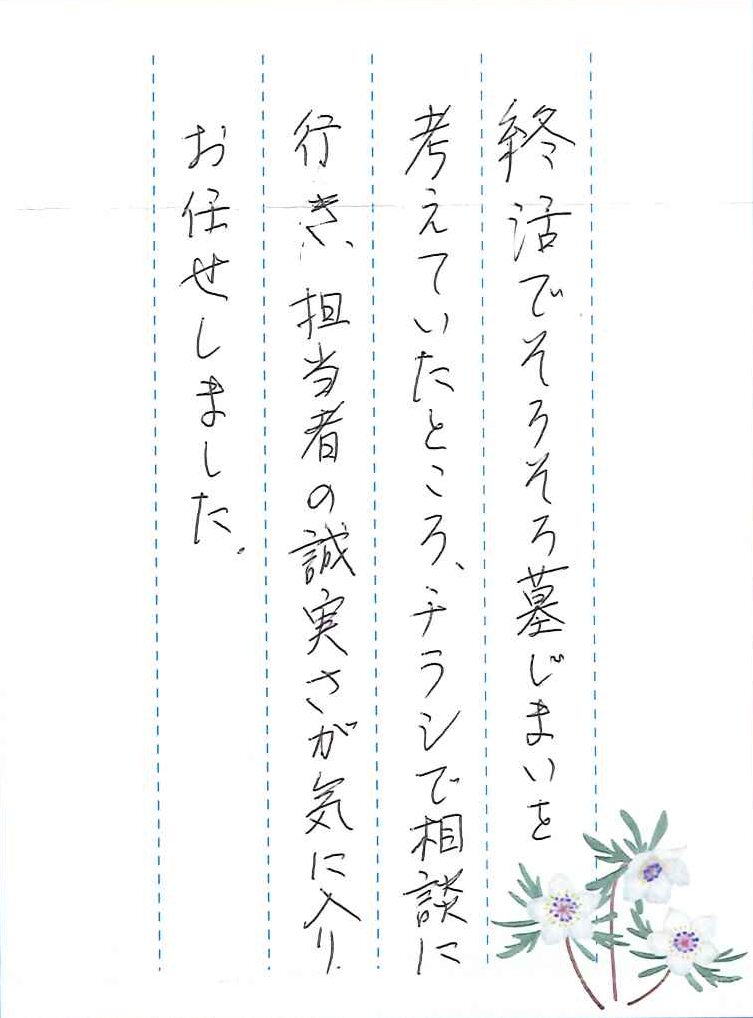 終活でそろそろ墓じまいを
考えていたところ、チラシで相談に
行き、担当者の誠実さが気に入り
お任せしました.